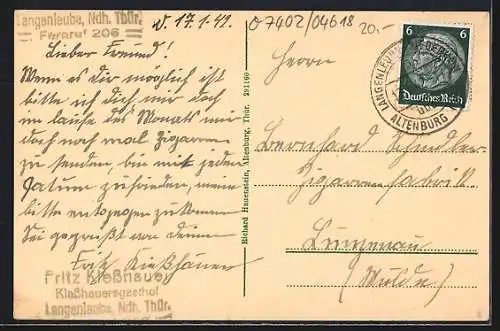 Langenleuba, Ndh. Thür.
Fernruf 206
d. 17.1.42.
O 7402/04618
20.-
Lieber Freund!
Wenn es dir möglich ist
bitte ich dich mir doch
im laufe des Monats mir
doch noch mal Zigarren
zu senden, bin mit jeden
Datum zufrieden, meine
bitte entgegen zu kommen
Sei gegrüßt von deinem
Fritz Kießhauer
Fritz Kießhauer
Kießhauersgasthof
Langenleuba, Ndh. Thür.
Richard Hauenstein, Altenburg, Thür. 291160
6 6
Deutsches Reich
ALTENBURG
Herrn
Bernhard Schindler
Zigarrenfabrik
Lunzenau
(Mulde)